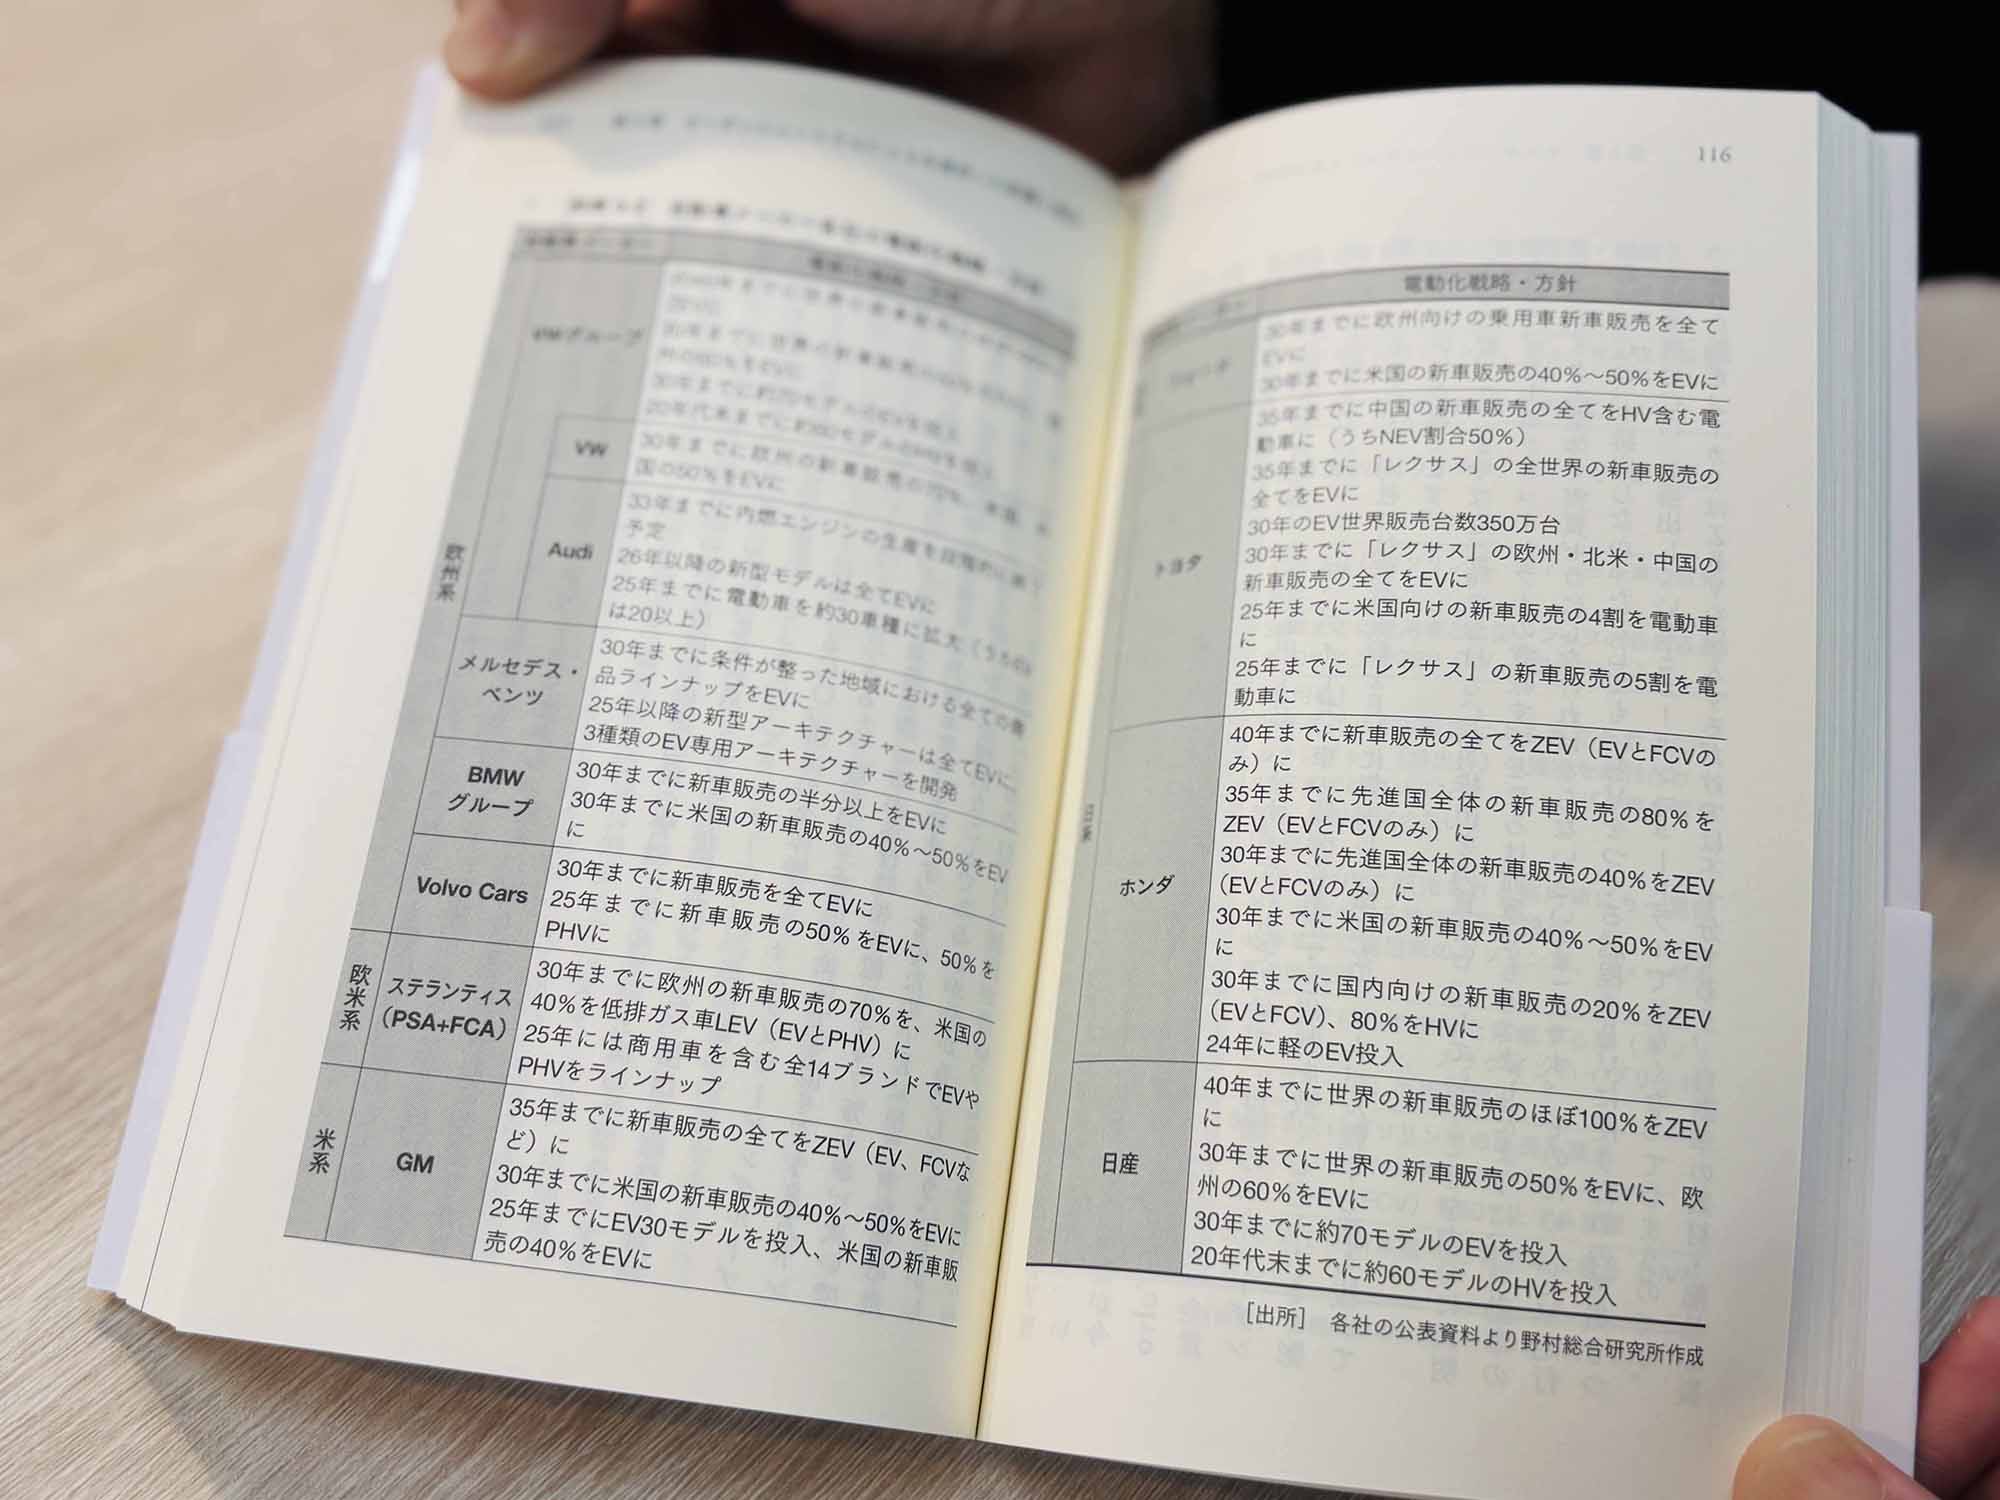 VWグループ
30年までに約70モデルのEVを投入
20年代末までに約60モデルのHVを投入
VW
30年までに欧州の新車販売の70%、米国、
国の50%をEVに
Audi
33年までに内燃エンジンの生産を段階的に
予定
26年以降の新型モデルは全てEVに
25年までに電動車を約30車種に拡大（うち
は20以上）
欧州系
メルセデス・
ベンツ
30年までに条件が整った地域における全ての商
品ラインナップをEVに
25年以降の新型アーキテクチャーは全てEVに、
3種類のEV専用アーキテクチャーを開発
BMW
グループ
30年までに新車販売の半分以上をEVに
30年までに米国の新車販売の40%〜50%をEV
に
Volvo Cars
30年までに新車販売を全てEVに
25年までに新車販売の50%をEVに、50%を
PHVに
欧米系
ステランティス
（PSA+FCA）
30年までに欧州の新車販売の70%を、米国の
40%を低排ガス車LEV（EVとPHV）に
25年には商用車を含む全14ブランドでEVや
PHVをラインナップ
米系
GM
35年までに新車販売の全てをZEV（EV、FCVな
ど）に
30年までに米国の新車販売の40%〜50%をEVに
25年までにEV30モデルを投入、米国の新車販
売の40%をEVに
116
電動化戦略・方針
30年までに欧州向けの乗用車新車販売を全て
EVに
30年までに米国の新車販売の40%〜50%をEVに
トヨタ
35年までに中国の新車販売の全てをHV含む電
動車に（うちNEV割合50%）
35年までに「レクサス」の全世界の新車販売の
全てをEVに
30年のEV世界販売台数350万台
30年までに「レクサス」の欧州・北米・中国の
新車販売の全てをEVに
25年までに米国向けの新車販売の4割を電動車
に
25年までに「レクサス」の新車販売の5割を電
動車に
日系
ホンダ
40年までに新車販売の全てをZEV（EVとFCVの
み）に
35年までに先進国全体の新車販売の80%を
ZEV（EVとFCVのみ）に
30年までに先進国全体の新車販売の40%をZEV
（EVとFCVのみ）に
30年までに米国の新車販売の40%〜50%をEV
に
30年までに国内向けの新車販売の20%をZEV
（EVとFCV）、80%をHVに
24年に軽のEV投入
日産
40年までに世界の新車販売のほぼ100%をZEV
に
30年までに世界の新車販売の50%をEVに、欧
州の60%をEVに
30年までに約70モデルのEVを投入
20年代末までに約60モデルのHVを投入
［出所］ 各社の公表資料より野村総合研究所作成